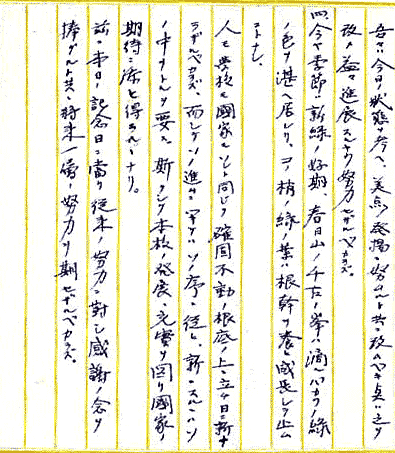 吾々ハ今日ノ状態ヲ考ヘ、美点ノ発揚ニ努ムルト共ニ改ムベキ点ハ之ヲ
改メ益々進展スルヤウ努力セザルベカラズ。
四、今ヤ季節ハ新緑ノ好期、春日山ノ千古ノ峯ハ滴ルバカリノ緑
ノ色ヲ湛ヘ居レリ、コノ梢ノ緑ノ葉ハ根幹ヲ養ヒ成長シテ止ム
コトナシ、
人モ学校モ国家モソレト同ジク確固不動ノ根底ノ上ニ立チ日ニ新ナ
ラザルベカラズ、而シテソノ進ムヤソノ序ニ従ヒ、新ハソ
ノ中ヲトルヲ要ス、斯クシテ本校ノ発展ト充実ヲ図リ国家ノ
期待ニ添ヒ得ラルルナリ。
茲ニ本日ノ記念日ニ当リ従来ノ努力ニ対シ感謝ノ念ヲ
捧グルト共ニ将来一層ノ努力ヲ期セザルベカラズ。